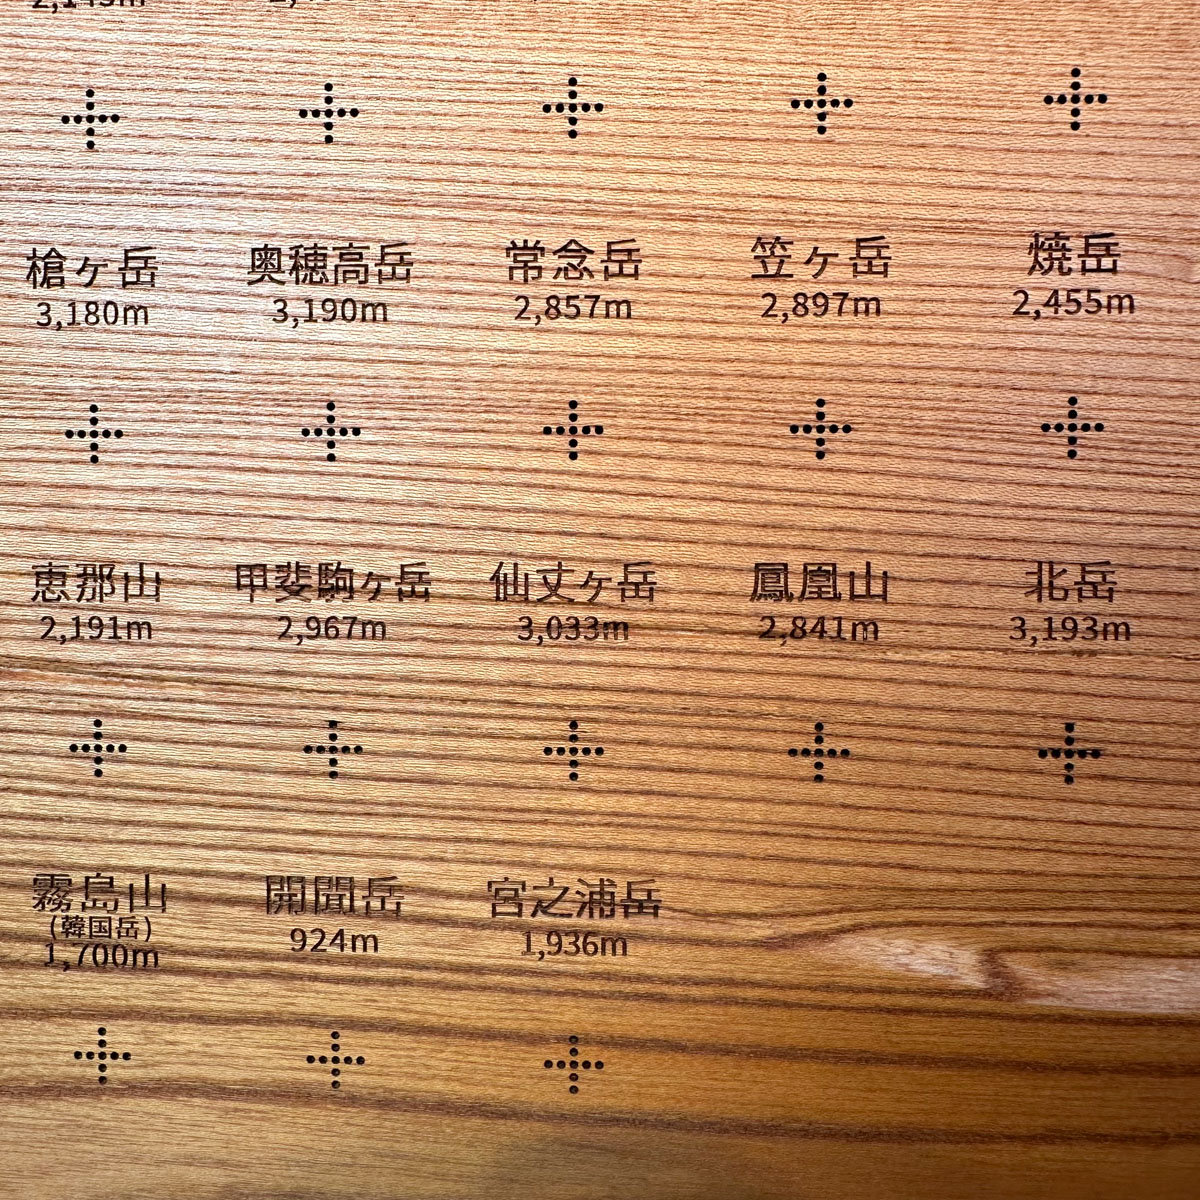 槍ヶ岳 奥穂高岳 常念岳 笠ヶ岳 焼岳
3,180m 3,190m 2,857m 2,897m 2,455m
恵那山 甲斐駒ヶ岳 仙丈ヶ岳 鳳凰山 北岳
2,191m 2,967m 3,033m 2,841m 3,193m
霧島山 開聞岳 宮之浦岳
(韓国岳)
1,700m 924m 1,936m